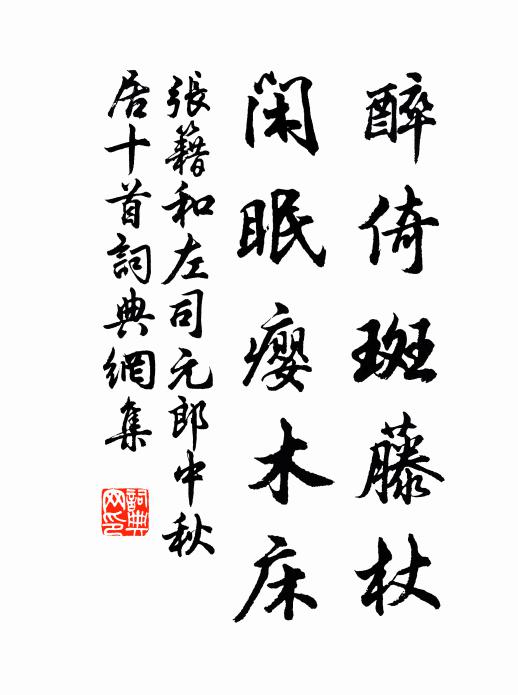 醉倚斑藤杖
閑眠癭木床
張籍和左司元郎中秋
居十首詞典網集
詞典
网印